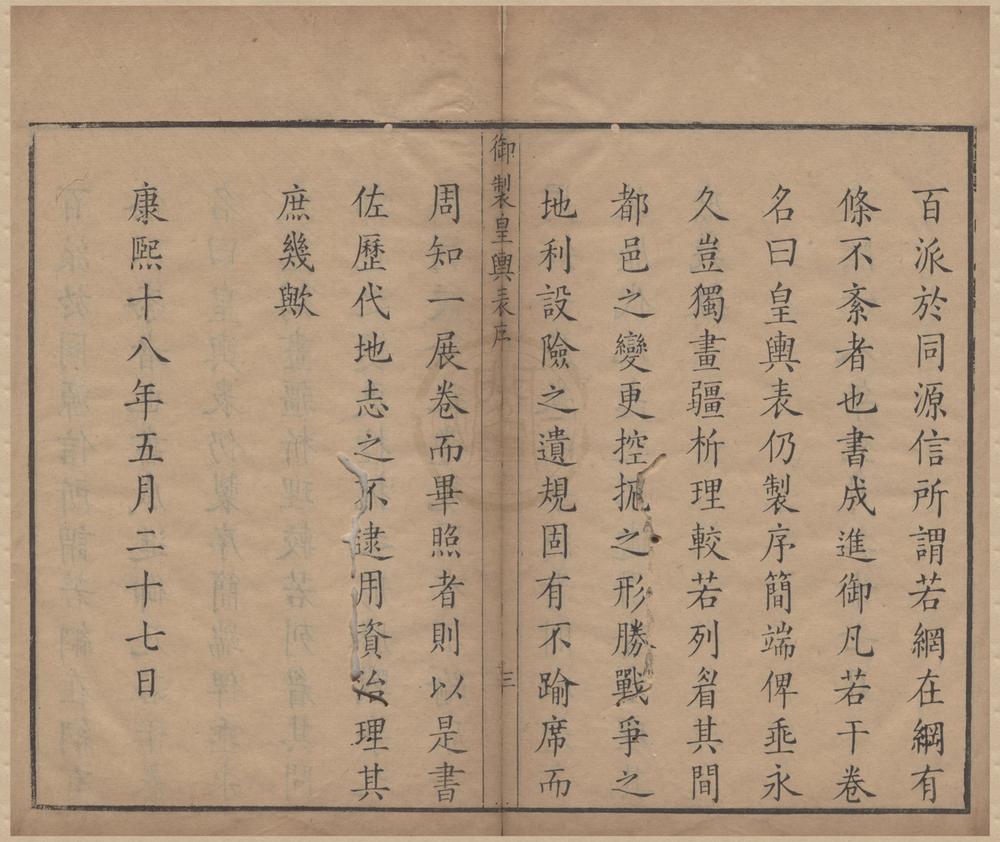 百派於同源信所謂若網在綱有
條不紊者也書成進御凡若干卷
名曰皇輿表仍製序簡端俾垂永
久豈獨畫疆析理較若列眉其間
都邑之變更控扼之形勝戰爭之
地利設險之遺規固有不踰席而
御製皇輿表序
三
周知一展卷而畢照者則以是書
佐歷代地志之不逮用資治理其
庶幾歟
康熙十八年五月二十七日